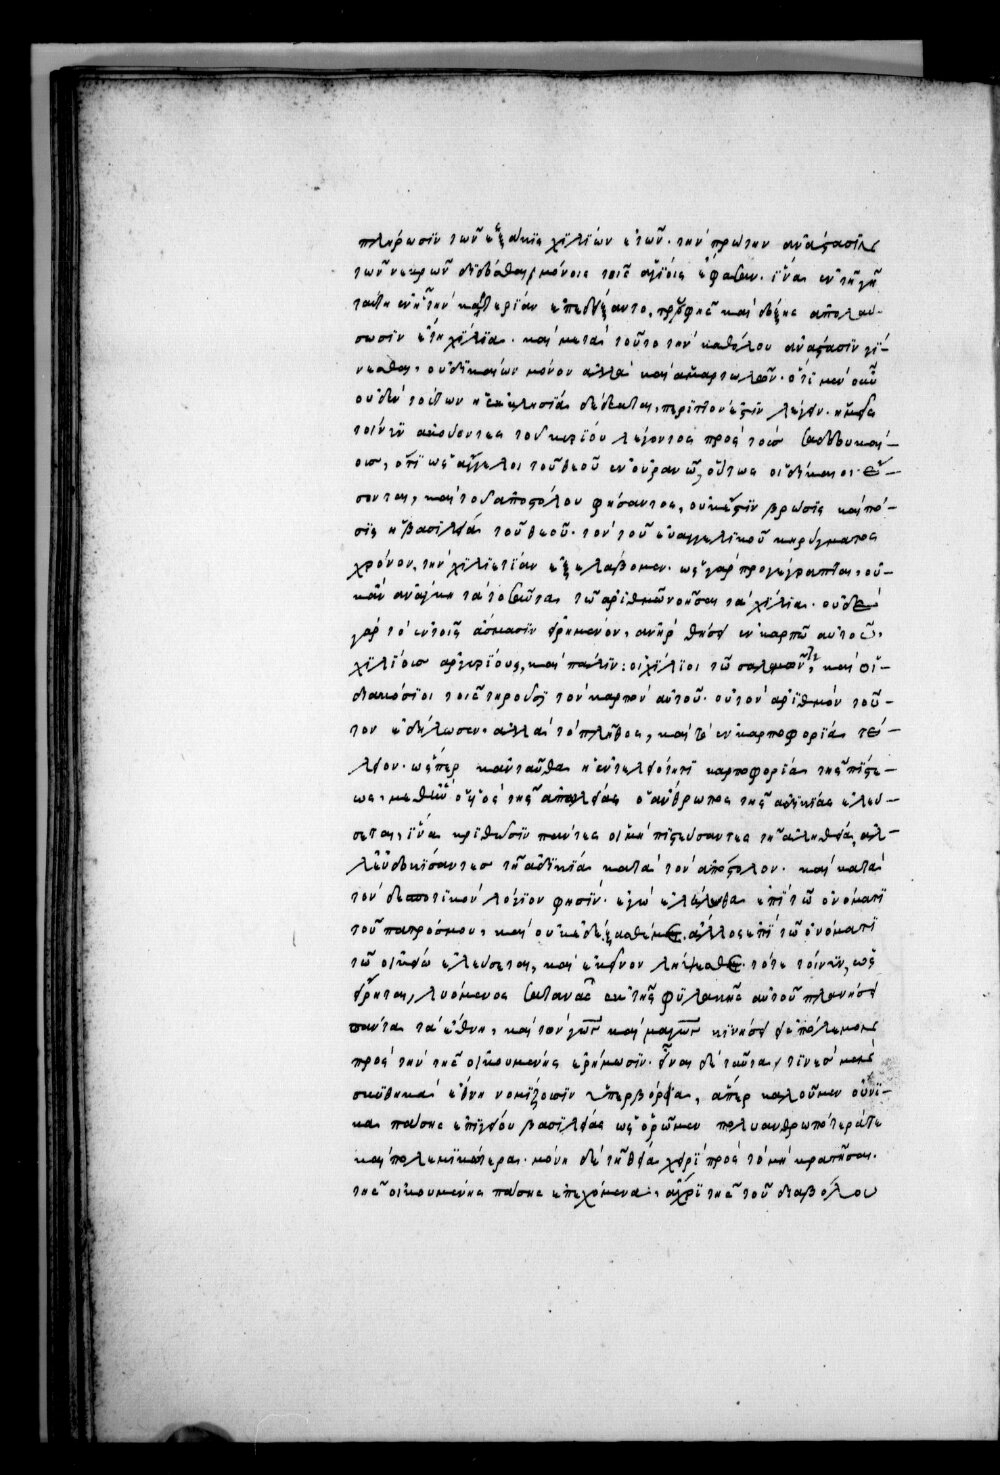 πλήρωσϊν τῶν ἑξάκις χϊλϊων ἐτῶν· τὴν πρώτην ἀνάστασιν
τῶν νεκρῶν δϊδόσθαι μόνοις τοῖς ἁγίοις ἔφασαν· ἵνα ἐν τῆ γῆ
ταύτη ἐν ἧ τὴν καρτερίαν ἐπεδείξαντο, τρυφῆς καὶ δόξης ἀπολαύ-
σωσϊν ἔτη χίλϊα· καὶ μετὰ τοῦτο τὴν καθόλου ἀνάστασϊν γί-
νεσθαι, οὐ δϊκαίων μόνον ἀλλὰ καὶ ἁμαρτωλῶν· ὅτϊ μὲν οὖν
οὐδὲν τούτων ἡ ἐκκλησία δέδεκται, περιττόν ἐστϊν λέγειν· ἡμεῖς
τοίνυν ἀκούοντες τοῦ κυρίου λέγοντος πρὸς τοὺς σαδδουκαί-
ους, ὅτϊ ὡς ἄγγελοι τοῦ θεοῦ ἐν οὐρανῶ, οὕτως οἱ δίκαιοι ἔ-
σονται, καὶ τοῦ ἀποστόλου φήσαντος, οὐκ ἔστϊν βρῶσϊς καὶ πό-
σϊς ἡ βασϊλεία τοῦ θεοῦ· τὸν τοῦ εὐαγγελϊκοῦ κηρύγματος
χρόνον, τὴν χϊλϊετίαν ἐξελάβομεν· ὡς γὰρ προγέγραπται, οὐ-
κ ἀνάγκη τὰ τοσαῦτα τῶ ἀρϊθμῶ νοῆσαι τὰ χίλια· οὐδὲ
γὰρ τὸ ἐν τοῖς ἄσμασϊν εἰρημένον, ἀνὴρ θήσει ἐν καρπῶ αὐτοῦ,
χϊλίους ἀργυρίους, καὶ πάλϊν· οἱ χίλϊοι τῶ σαλομῶν, καὶ οἱ
διακόσϊοι τοῖς τηροῦσϊ τὸν καρπὸν αὐτοῦ· οὐ τὸν ἀρϊθμὸν τοῦ-
τον ἐδήλωσεν· ἀλλὰ τὸ πλῆθος, καὶ τὸ ἐν καρποφορία τέ-
λειον· ὥσπερ κἀνταῦθα ἡ ἐν τελειότητϊ καρποφορία τῆς πίστε-
ως· μεθ ὃν ὁ υἱὸς τῆς ἀπωλείας ὁ ἄνθρωπος τῆς ἀδϊκίας ἐλεύ-
σεται, ἵνα κρϊθῶσϊν πάντες οἱ μὴ πϊστεύσαντες τῆ ἀληθεία, ἀλ-
λ εὐδοκήσαντες τῆ ἀδϊκία κατὰ τὸν ἀπόστολον· καὶ κατὰ
τὸν δεσποτϊκὸν λόγϊον φησϊν· ἐγὼ ἐλήλυθα ἐπὶ τῶ ὀνόματϊ
τοῦ πατρός μου, καὶ οὐκ ἐδέξασθέ με, ἄλλος ἐπϊ τῶ ὀνόματϊ
τῶ οἰκείω ἐλεύσεται, καὶ ἐκεῖνον λήψεσθε· τότε τοίνυν, ὡς
εἴρηται, λυόμενος σατανᾶς ἐκ τῆς φϋλακῆς αὐτοῦ πλανήσει
πάντα τὰ ἔθνη, καὶ τὸν γὼγ καὶ μαγὼγ κϊνήσει εἰς πόλεμον
πρὸς τὴν τῆς οἰκουμένης ἐρήμωσϊν· εἶναι δὲ ταῦτα, τϊνὲς μὲν
σκυθϊκὰ ἔθνη νομίζουσϊν ὑπερβόρεια, ἅπερ καλοῦμεν οὐνϊ-
κὰ πάσης ἐπϊγείου βασϊλείας ὡς ὁρῶμεν πολυανθρωπότερά τε
καὶ πολεμϊκώτερα· μόνη δὲ τῆ θεία χειρὶ πρὸς τὸ μὴ κρατῆσαι
τῆς οἰκουμένης πάσης ἐπεχόμενα, ἄχρϊ τῆς τοῦ διαβόλου